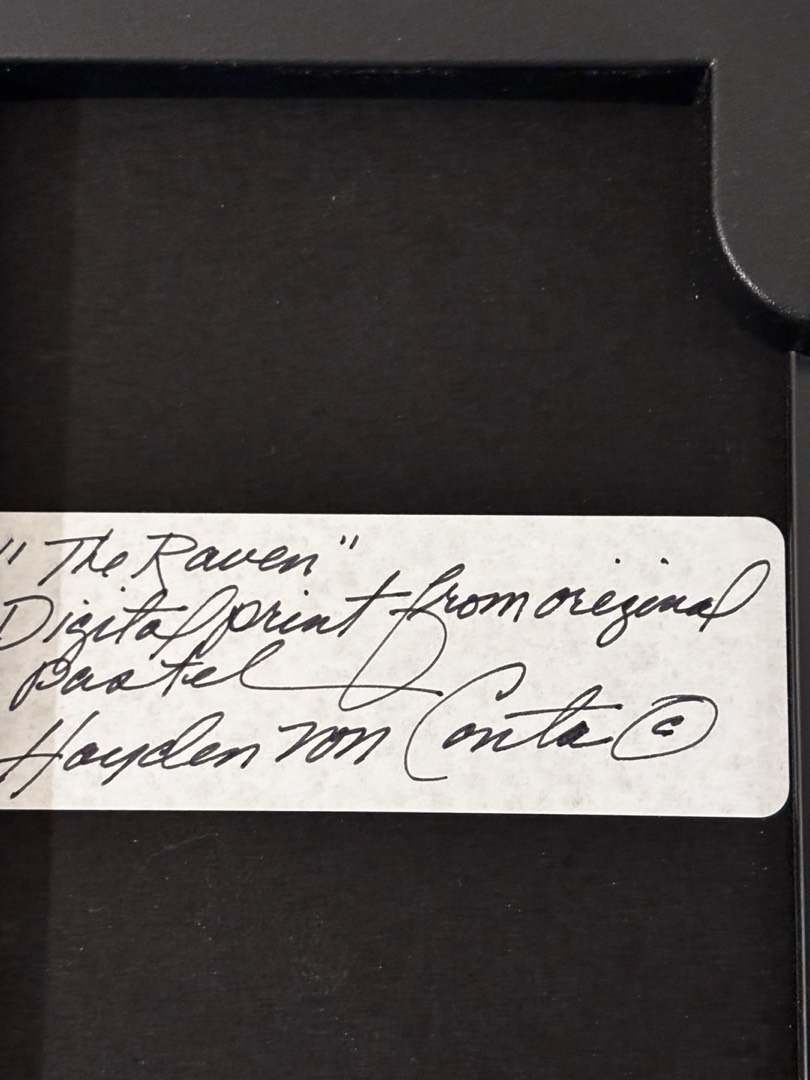 "The Raven"
Digital print from original
Pastel
Hayden von Conta ©